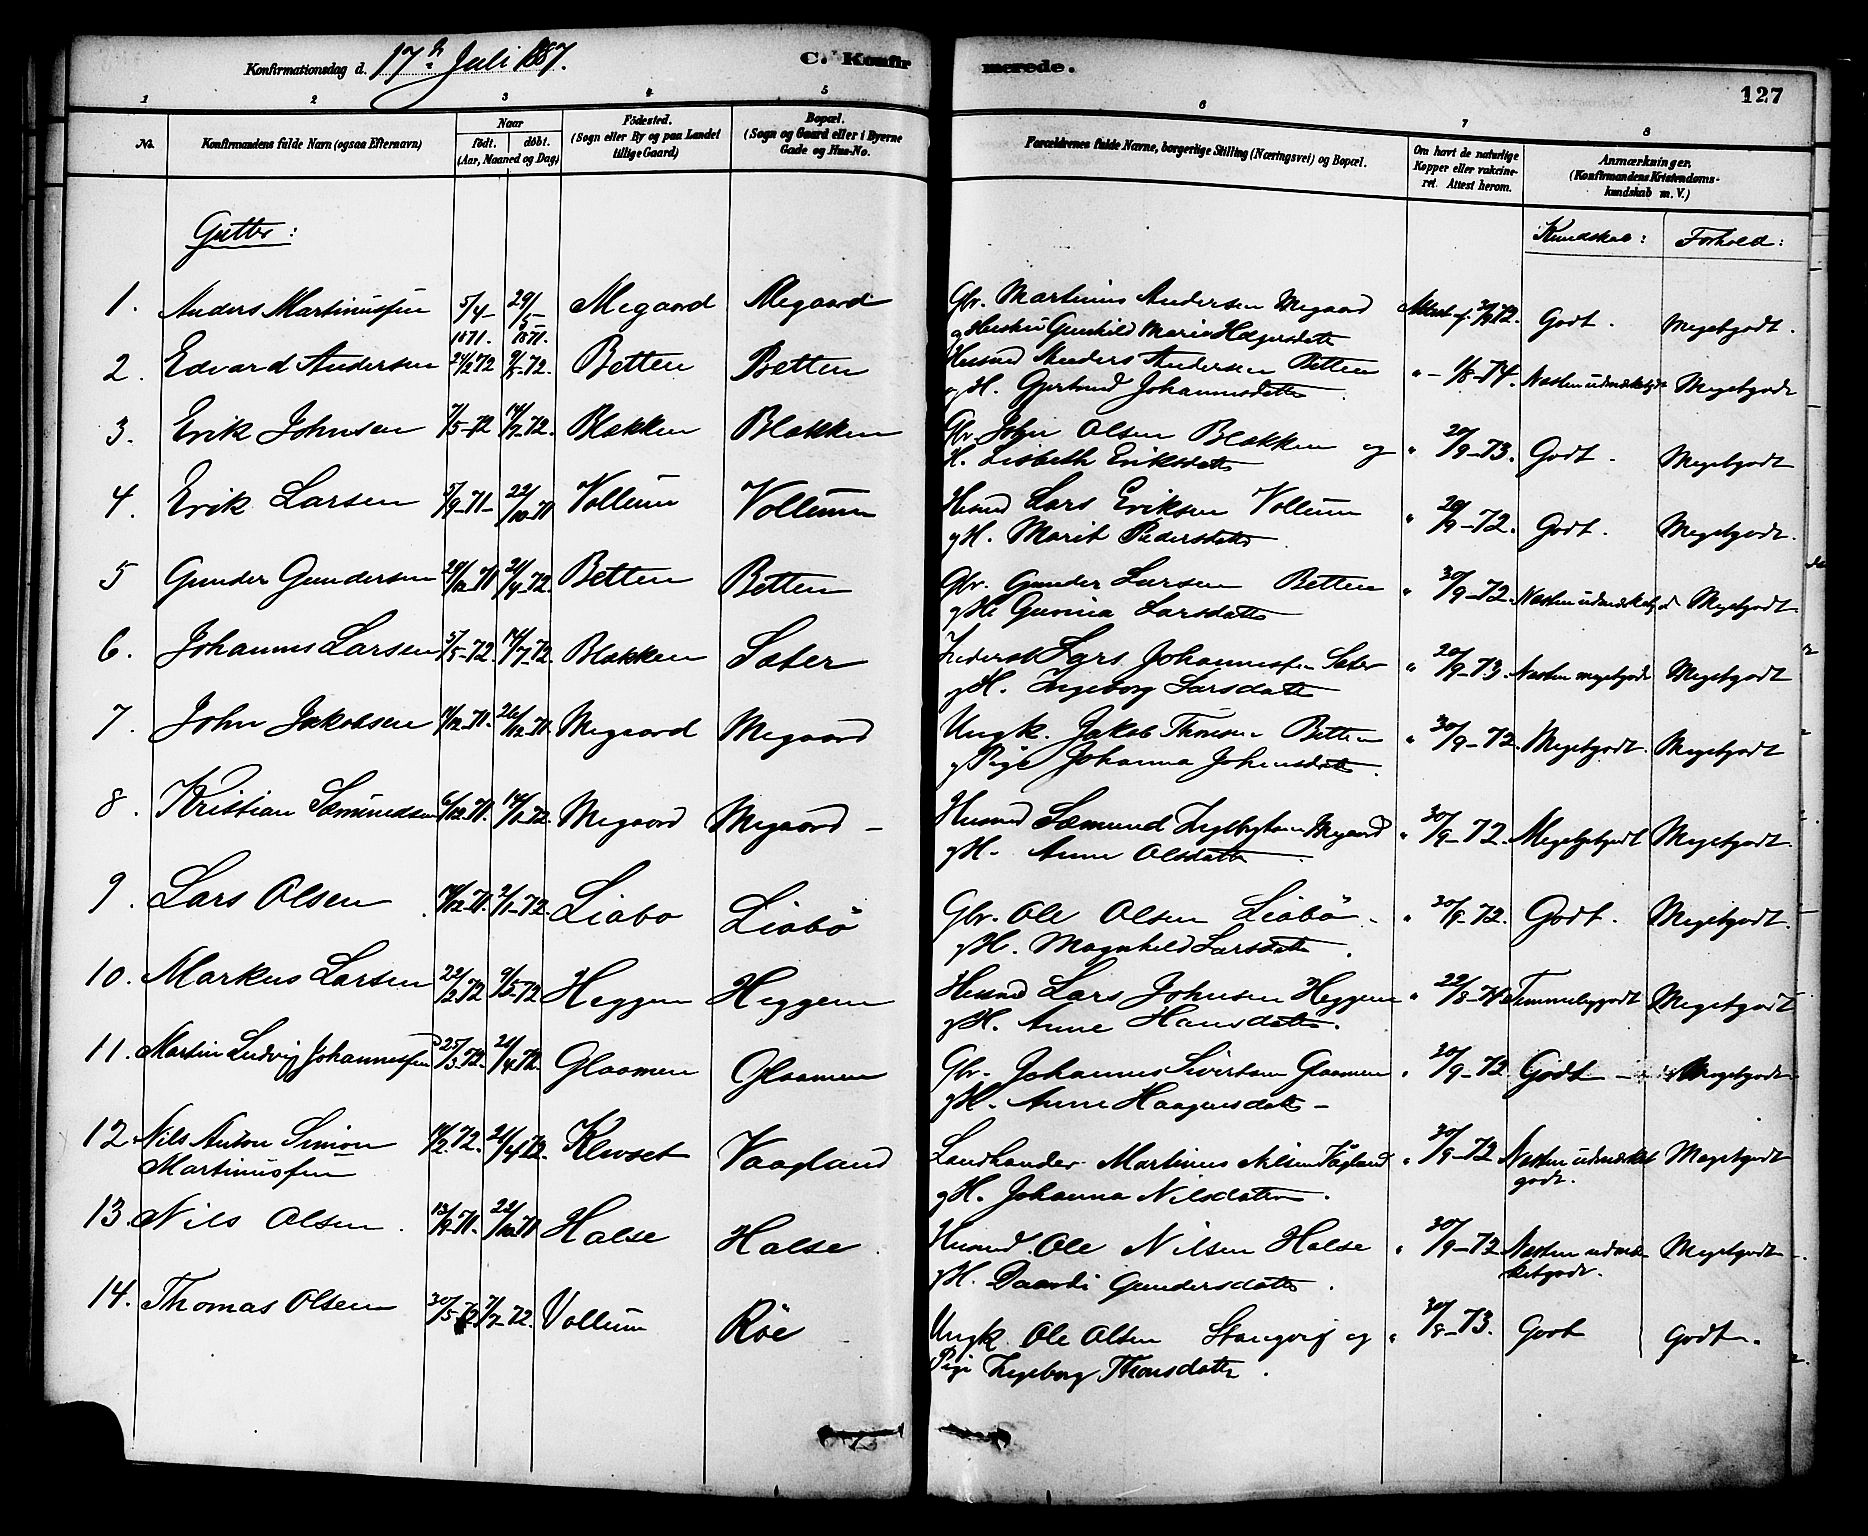 Konfirmationsdag d. 17de Juli 1887. C. Konfirmerede. 127
1 2 3 4 5 6 7 8
No. Konfirmandens fulde Navn (ogsaa Efternavn) Naar født. døbt. (Aar, Maaned og Dag) Fødested. (Sogn eller By og paa Landet tillige Gaard) Bopæl. (Sogn og Gaard eller i Byerne Gade og Hus-No. Forældrenes fulde Navne, borgerlige Stilling (Næringsvei) og Bopæl. Om havt de naturlige Kopper eller vakcineret. Attest herom. Anmærkninger. (Konfirmandens Kristendomskundskab m. V.)
Gutter: Kundskab: Forhold:
1. Anders Martinussen 5/4 1871. 29/5 1871. Megaard Megaard Gbr. Martinus Andersen Megaard Attest af 30/9 72. Godt. Megetgodt.
og Hustru Gunhild Marie Holgersdatter
2. Edvard Andersen 24/2 72 9/5-72. Betten Betten Husmd Anders Andersen Betten " - 1/8-74. Næsten udmærketgodt Megetgodt
og H. Gjertrud Johannesdatter
3. Erik Johnsen 7/5-72 14/7-72. Blækken Blækken Gbr. John Olsen Blækken og " 20/9-73. Godt. Megetgodt
H. Lisbeth Eriksdatter
4. Erik Larsen 5/9-71- 22/10-71 Vollum Vollum Husmd Lars Eriksen Vollum " 20/9-72. Godt. Megetgodt.
og H. Marit Pedersdatter
5 Gunder Gundersen 29/12-71 21/4-72. Betten Betten Gbr. Gunder Larsen Betten " 30/9-72. Næsten udmærketgodt Megetgodt
og H. Gurina Larsdatter
6. Johannes Larsen 5/5-72. 14/7-72. Blækken Sæter Larsen Johannessen Sæter " 20/9-73. Næsten megetgodt Megetgodt
og H. Ingeborg Larsdatter
7. John Jakobsen 11/12-71. 26/12-71. Megaard Megaard Ungk. Jakob Thoresen Betten " 30/9-72. Megetgodt. Megetgodt
og Pige Johanna Johnsdatter.
8. Kristian Sæmundsen 6/12-71. 14/1-72. Megaard Megaard - Husmd Sæmund Ingebrigtsen Megaard " 30/9-72. Megetgodt Megetgodt.
og H. Anne Olsdatter
9. Lars Olsen 14/12-71. 2/1-72. Liabø Liabø Gbr. Ole Olsen Liabø. " 30/9-72. Godt. Megetgodt.
og H. Magnhild Larsdatter.
10. Markus Larsen 22/2 72 9/5-72 Heggem Heggem Husmd Lars Johnsen Heggem " 22/8-74 Temmeliggodt Megetgodt
og H. Anne Hansdatter.
11. Martin Ludvig Johannessen 25/3-72. 21/4 72. Glaamen Glaamen Gbr. Johannes Sivertsen Glaamen " 20/9-72 Godt - Megetgodt
og H. Anne Haagensdatter -
12. Nils Anton Simon 14/2. 72. 21/4 72. Klevset Vaagland Landhandler Martinus Nilsen Vågland " 30/9-72 Næsten udmærket Megetgodt
Martinussen og H. Johanna Nilsdatter. godt.
13. Nils Olsen. 13/9-71. 22/10-71 Halse Halse Husmd. Ole Nilsen Halse " 30/9-72 Næsten udmær- Megetgodt.
og H. Daardi Gundersdatter. ketgodt.
14. Thomas Olsen 30/5-72 7/7-72. Vollum Røe Ungk. Ole Olsen Stangvig og " 30/9-73. Godt Godt.
Pige Ingeborg Thoresdatter.